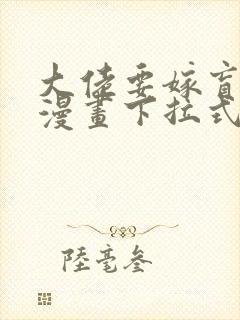 大佬要嫁盲
漫畫下拉式
陸毫叄